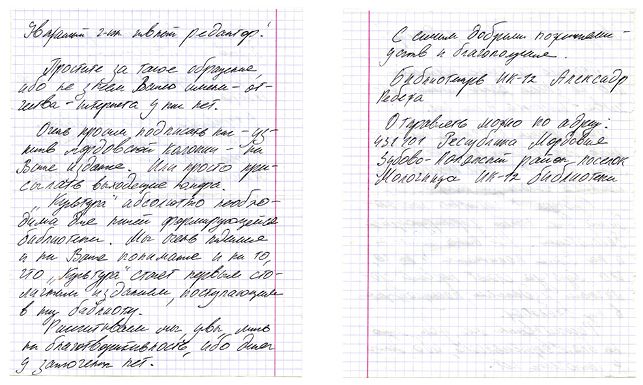 Уважаемый г-н главный редактор!
Простите за такое обращение,
ибо не знаем Вашего имени-от-
чества - Интернета у нас нет.
Очень просим подписать нас - уз-
ников мордовской колонии - на
Ваше издание. Или просто при-
сылать выходящие номера.
„Культура" абсолютно необхо-
дима для нашей формирующейся
библиотеки. Мы очень надеемся
и на Ваше понимание и на то,
что „Культура" станет первым сто-
личным изданием, поступающим
в эту библиотеку.
Рассчитываем мы, увы, лишь
на благотворительность, ибо денег
у заключенных нет.
С самыми добрыми пожелани-
ями и благополучия.
Библиотекарь ИК-12 Александр
Отправлять можно по адресу:
431101 Республика Мордовия
Зубово-Полянский район поселок
Молочница ИК-12 библиотека